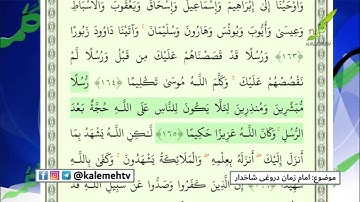 وَأَوْحَيْنَا إِلَىٰ إِبْرَاهِيمَ وَإِسْمَاعِيلَ وَإِسْحَاقَ وَيَعْقُوبَ وَالْأَسْبَاطِ
وَعِيسَىٰ وَأَيُّوبَ وَيُونُسَ وَهَارُونَ وَسُلَيْمَانَ ۚ وَآتَيْنَا دَاوُودَ زَبُورًا
﴿١٦٣﴾ وَرُسُلًا قَدْ قَصَصْنَاهُمْ عَلَيْكَ مِن قَبْلُ وَرُسُلًا لَّمْ
نَقْصُصْهُمْ عَلَيْكَ ۚ وَكَلَّمَ اللَّـهُ مُوسَىٰ تَكْلِيمًا ﴿١٦٤﴾ رُّسُلًا
مُّبَشِّرِينَ وَمُنذِرِينَ لِئَلَّا يَكُونَ لِلنَّاسِ عَلَى اللَّـهِ حُجَّةٌ بَعْدَ
الرُّسُلِ ۚ وَكَانَ اللَّـهُ عَزِيزًا حَكِيمًا ﴿١٦٥﴾ لَّـٰكِنِ اللَّـهُ يَشْهَدُ بِمَا
أَنزَلَ إِلَيْكَ ۖ أَنزَلَهُ بِعِلْمِهِ ۖ وَالْمَلَائِكَةُ يَشْهَدُونَ ۚ وَكَفَىٰ بِاللَّـهِ
إِنَّ الَّذِينَ كَفَرُوا وَصَدُّوا عَن سَبِيلِ اللَّـهِ قَدْ
موضوع: امام زمان دروغی شاخدار
@kalemehtv